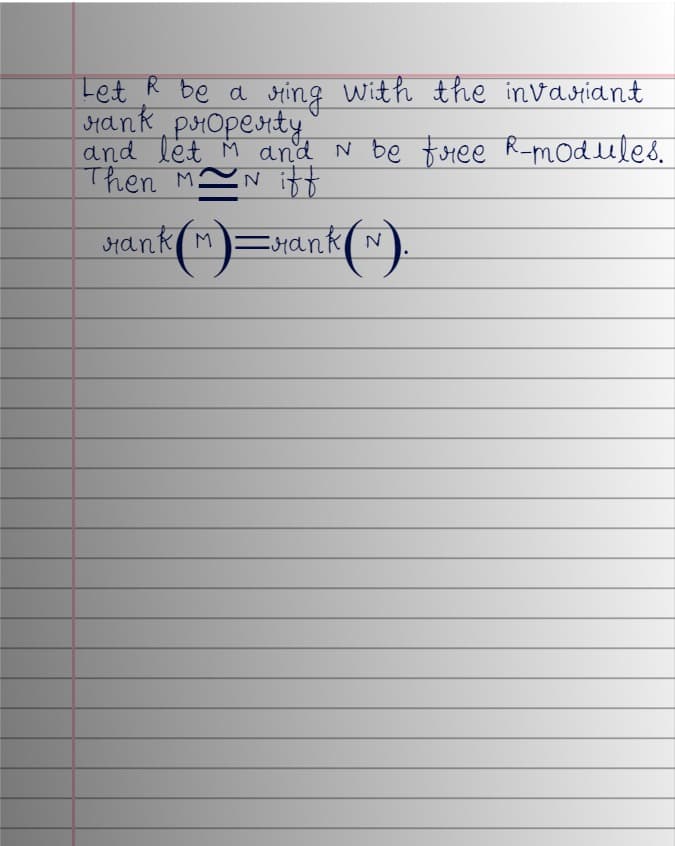 Let R be a ring with the invariant
rank property
and let M and N be free R-modules.
Then M≅N iff
rank(M)=rank(N).